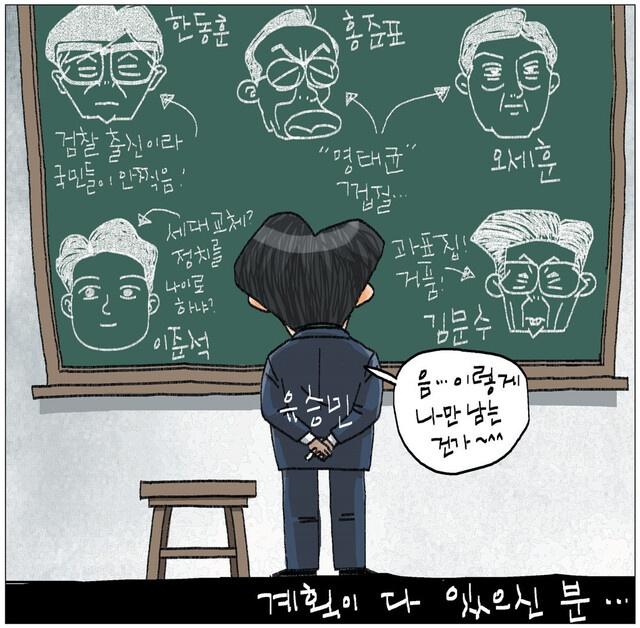 한동훈
홍준표
검찰 출신이라
국민들이 안찍음!
"명태균"
겁절...
오세훈
세대교체?
정치를
나이로
하냐?
이준석
과표집!
거품!
김문수
유승민
음...이렇게
나만 남는
건가~^^
계획이 다 있으신 분...